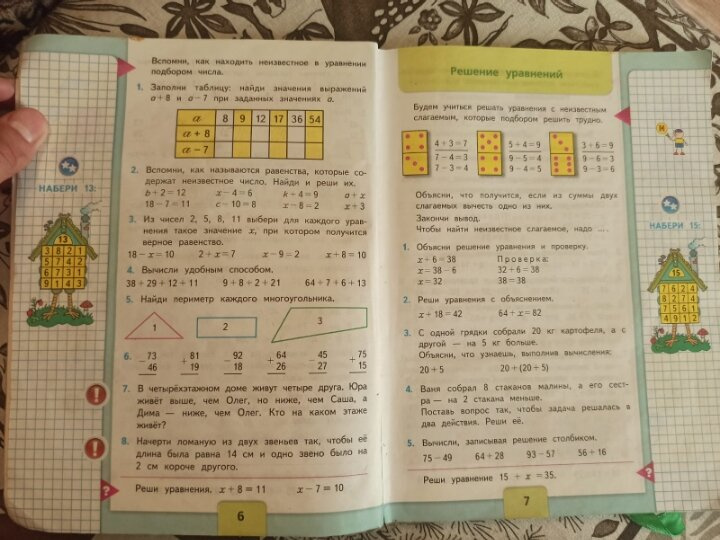 Вспомни, как находить неизвестное в уравнении
подбором числа.
1. Заполни таблицу: найди значения выражений
a + 8 и a − 7 при заданных значениях a.
a 8 9 12 17 36 54
a + 8
a − 7
2. Вспомни, как называются равенства, которые со-
держат неизвестное число. Найди и реши их.
b + 2 = 12 x − 4 = 6 k + 4 = 9 a + x
18 − 7 = 11 c − 10 = 8 x − 8 = 2 x + 3
3. Из чисел 2, 5, 8, 11 выбери для каждого урав-
нения такое значение x, при котором получится
верное равенство.
18 − x = 10 2 + x = 7 x − 9 = 2 x + 8 = 10
4. Вычисли удобным способом.
38 + 29 + 12 + 11 9 + 8 + 2 + 21 64 + 7 + 6 + 13
5. Найди периметр каждого многоугольника.
1 2 3
6. − 73 + 81 − 92 + 64 − 45 + 75
46 19 18 26 27 15
7. В четырёхэтажном доме живут четыре друга. Юра
живёт выше, чем Олег, но ниже, чем Саша, а
Дима — ниже, чем Олег. Кто на каком этаже
живёт?
8. Начерти ломаную из двух звеньев так, чтобы её
длина была равна 14 см и одно звено было на
2 см короче другого.
? Реши уравнения. x + 8 = 11 x − 7 = 10
6
НАБЕРИ 13:
13
3 8 2 1
5 4 2 4
6 7 3 1
9 1 4 3
!
!
Решение уравнений
Будем учиться решать уравнения с неизвестным
слагаемым, которые подбором решить трудно.
4 + 3 = 7 5 + 4 = 9 3 + 6 = 9
7 − 4 = 3 9 − 5 = 4 9 − 6 = 3
7 − 3 = 4 9 − 4 = 5 9 − 3 = 6
Объясни, что получится, если из суммы двух
слагаемых вычесть одно из них.
Закончи вывод.
Чтобы найти неизвестное слагаемое, надо ... .
1. Объясни решение уравнения и проверку.
x + 6 = 38 Проверка:
x = 38 − 6 32 + 6 = 38
x = 32 38 = 38
2. Реши уравнения с объяснением.
x + 18 = 42 64 + x = 82
3. С одной грядки собрали 20 кг картофеля, а с
другой — на 5 кг больше.
Объясни, что узнаешь, выполнив вычисления:
20 + 5 20 + (20 + 5)
4. Ваня собрал 8 стаканов малины, а его сест-
ра — на 2 стакана меньше.
Поставь вопрос так, чтобы задача решалась в
два действия. Реши её.
5. Вычисли, записывая решение столбиком.
75 − 49 64 + 28 93 − 57 56 + 16
? Реши уравнение 15 + x = 35.
7
НАБЕРИ 15:
15
7 6 2 4
8 2 7 4
7 5 6 1
4 9 1 2